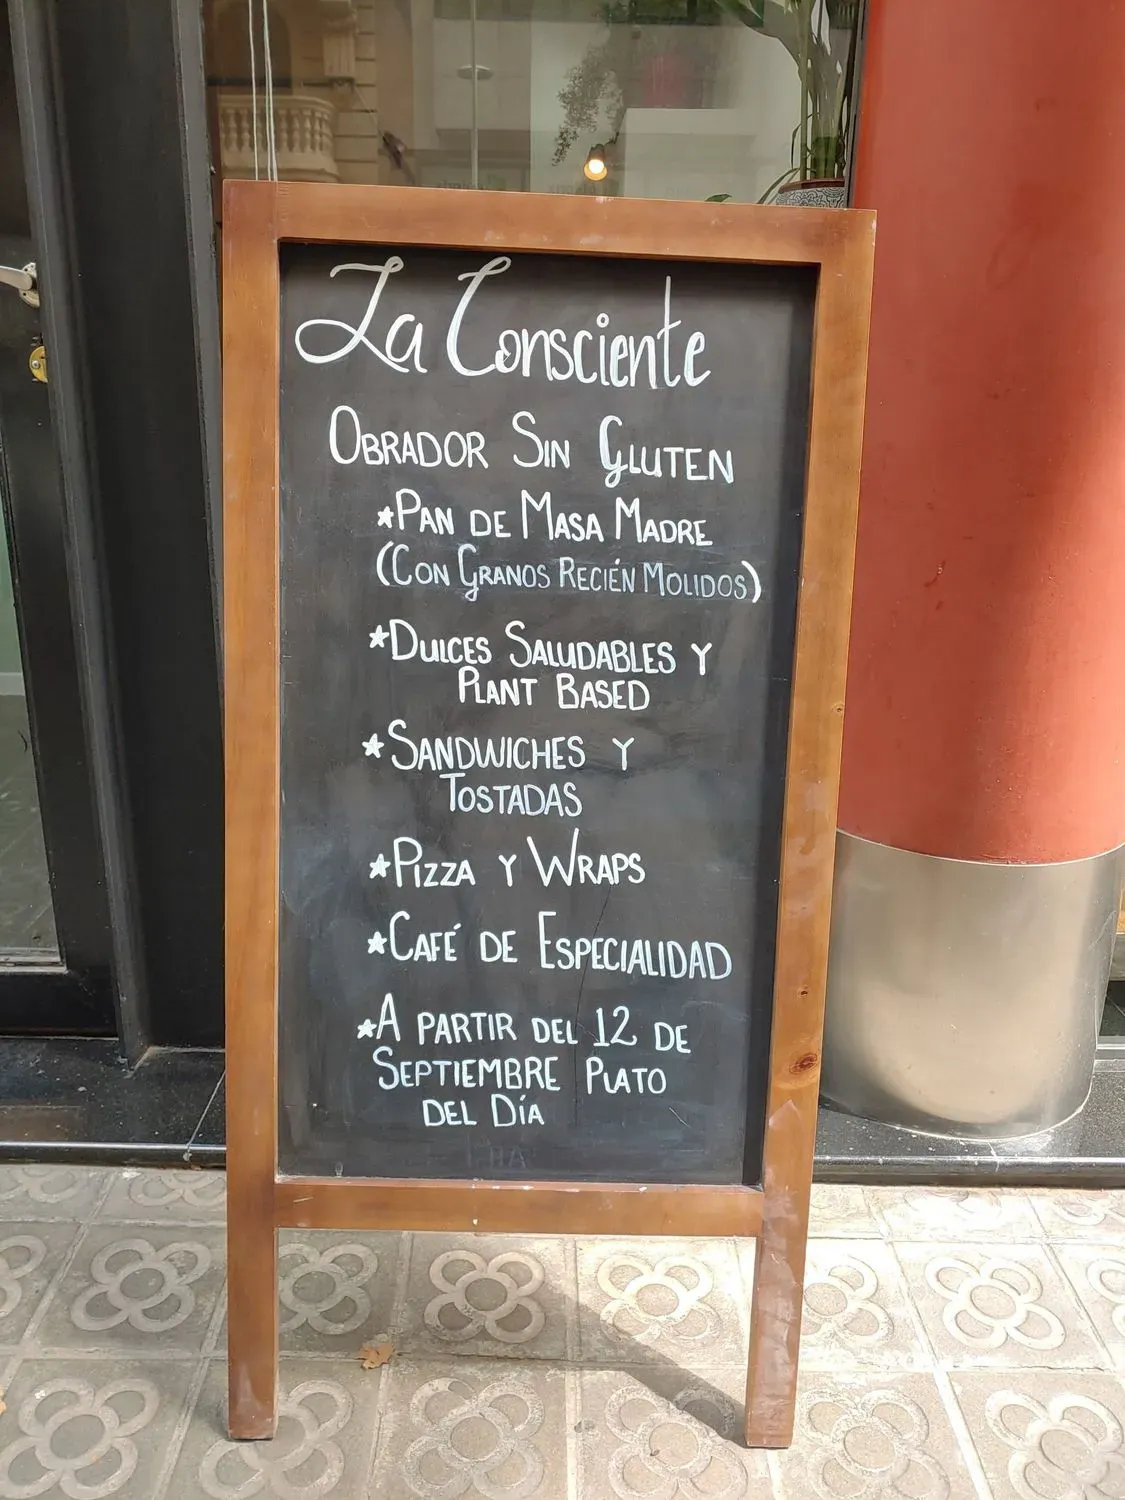 La Consciente
OBRADOR SIN GLUTEN
*PAN DE MASA MADRE
(CON GRANOS RECIÉN MOLIDOS)
*DULCES SALUDABLES Y
PLANT BASED
*SANDWICHES Y
TOSTADAS
*PIZZA Y WRAPS
*CAFÉ DE ESPECIALIDAD
*A PARTIR DEL 12 DE
SEPTIEMBRE PLATO
DEL DÍA